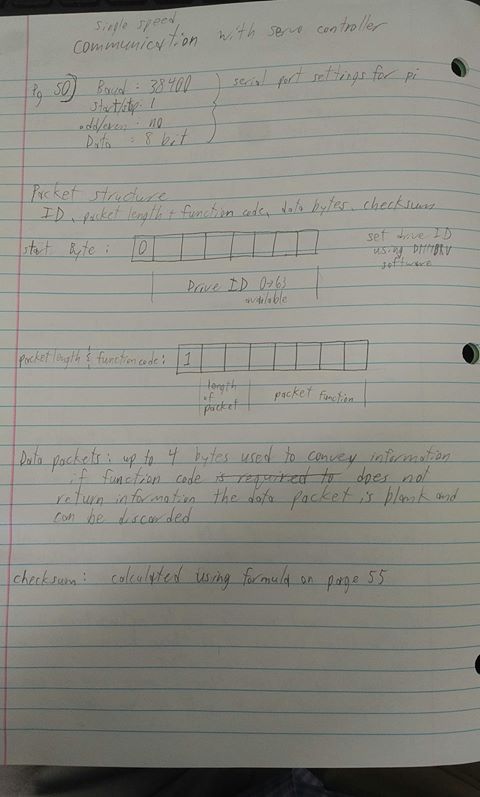 single speed
communication with servo controller
Pg 50) Baud: 38400
start/stop: 1
odd/even: no
Data = 8 bit
serial port settings for pi
Packet structure
ID, packet length + function code, data bytes, checksum
start Byte: 0
set drive ID
using
software
Drive ID 0→63
available
packet length & function code: 1
length
of
packet
packet function
Data packets: up to 4 bytes used to convey information
if function code is required to does not
return information the data packet is blank and
can be discarded
checksum: calculated using formula on page 55